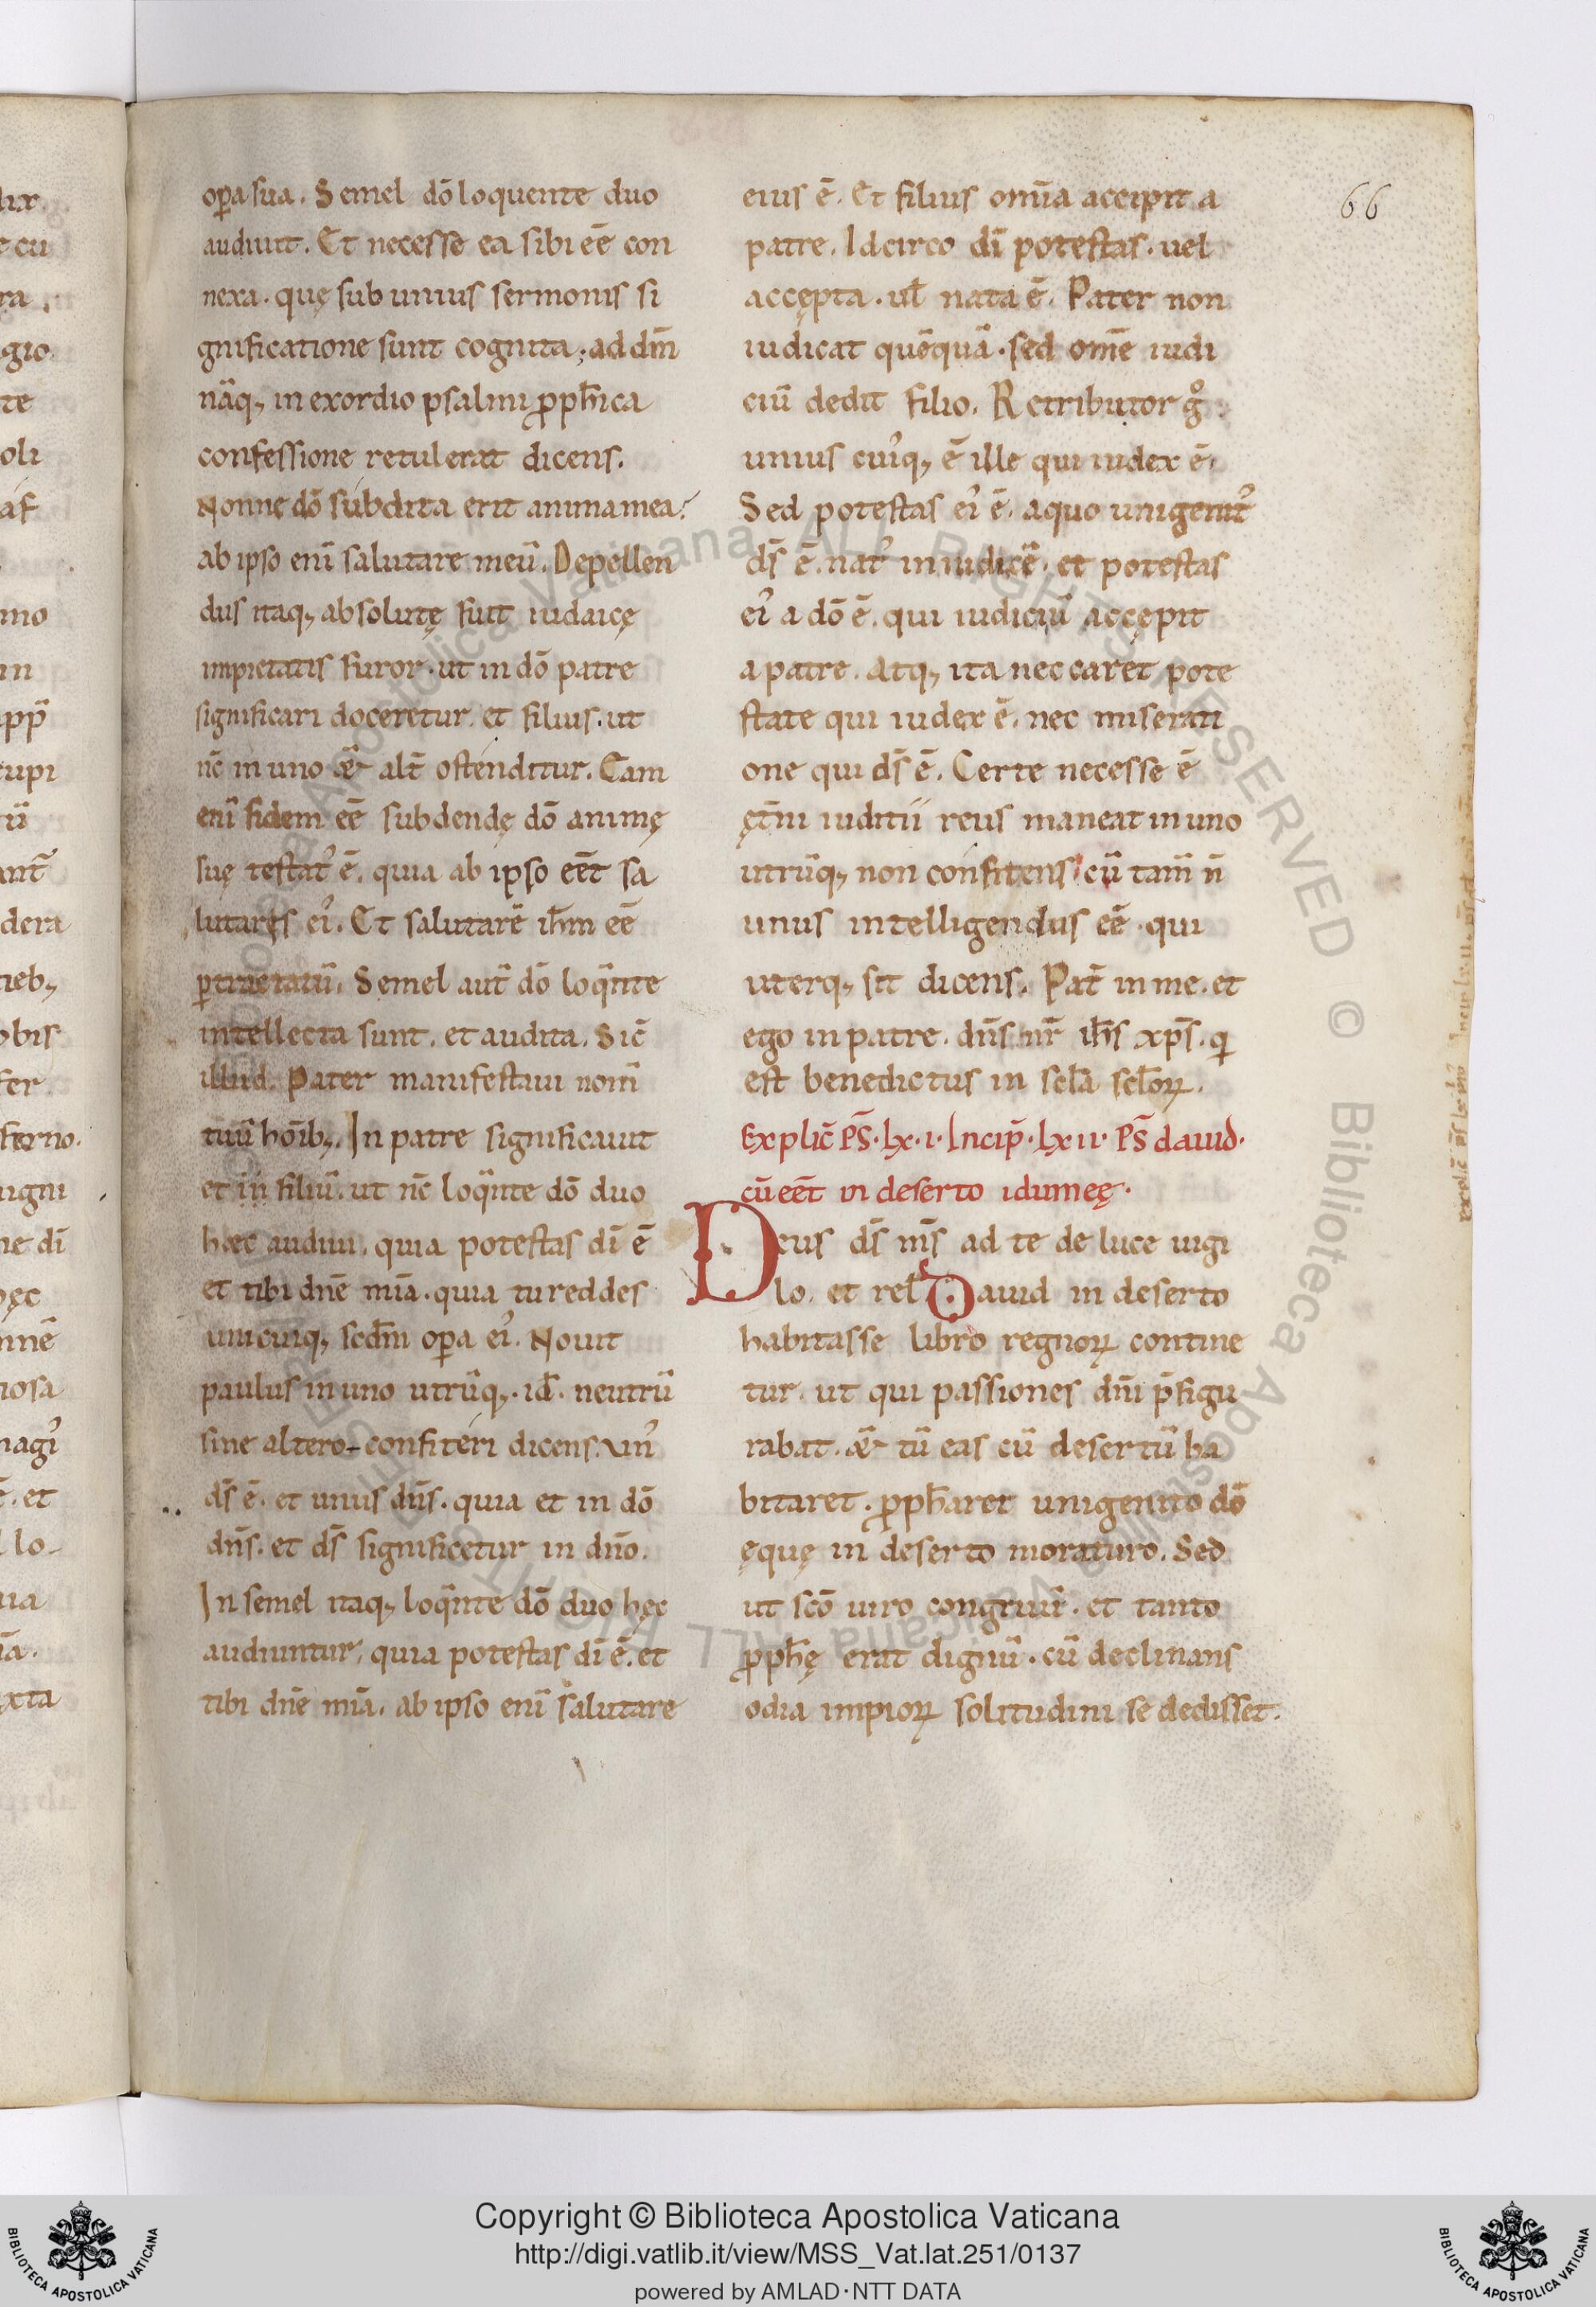 oꝑa sua. Semel dō loquente duo
audiuit. Et necesse ea sibi eē con
nexa. quę sub unius sermonis si
gnificatione sunt cognita; ad dm̄
nāq, in exordio psalmi ꝓph̄ica
confessione retulerat dicens.
Nonne dō subdita erit anima mea?
ab ipso enī salutare meū. Depellen
dus itaq, absolutę fuit iudaicę
impietatis furor. ut in dō patre
significari doceretur. et filius. ut
nc̄ in uno alt̄ ostenditur. Eam
enī fidem eē subdendę dō animę
suę testat᾽ ē. quia ab ipso eēt sa
lutaręs ei᾽. Et salutarē ih̄m eē
ꝑtractatū. Semel aut̄ dō loq̄nte
intellecta sunt. et audita. Sic̄
illud. Pater manifestaui nom̄
tuū hoīb,. In patre significauit
et in filiū. ut nc̄ loq̄nte dō duo
hęc audiui. quia potestas dī ē
et tibi dn̄e mīa. quia tu reddes
unicuiq, scdm̄ oꝑa ei᾽. Nouit
paulus in uno utrūq,. id̄. neutrū
sine altero confiteri dicens. un᾽
ds̄ ē. et unus dn̄s. quia et in dō
dn̄s. et ds̄ significetur in dn̄o.
In semel itaq, loq̄nte dō duo hęc
audiuntur, quia potestas dī ē. et
tibi dn̄e mīa. ab ipso enī salutare
eius ē. Et filius om̄ia accipit a
patre. Idcirco dī potestas. uel
accępta. ul̄ nata ē. Pater non
iudicat quēquā. sed om̄e iudi
ciū dedit filio. Retributor gͦ
unius cui᾽q, ē ille qui iudex ē.
Sed potestas ei᾽ ē. a quo unigenit᾽
ds̄ ē. nat᾽ in iudicē. et potestas
ei᾽ a dō ē. qui iudiciū accępit
a patre. Atq, ita nec caret pote
state qui iudex ē. nec miserati
one qui ds̄ ē. Certe necesse ē
ęt̄ni iuditii reus maneat in uno
utrūq, non confitens. cū tam̄ n̄
unus intelligendus eē. qui
uterq, sit dicens. Pat̄ in me. et
ego in patre. dn̄s nr̄ ih̄s xp̄s. q
est benedictus in scl̄a scl̄oꝝ.
Explic̄ PS̄. lx. i. Incip̄. lx ii. PS̄ dauid.
cū eēt in deserto idumeę.
Deus ds̄ m̄s ad te de luce uigi
lo. et rel̄. Dauid in deserto
habitasse libro regnoꝝ contine
tur. ut qui passiones dn̄i p̄figu
rabat. tū eas cū desertū ha
bitaret. ꝓph̄aret unigenito dō
ęquę in deserto moraturo. Sed
ut sc̄o uiro congruit. et tanto
ꝓph̄ę erat dignū. cū declinans
odia impioꝝ solitudini se dedisset.
66
Copyright © Biblioteca Apostolica Vaticana
http://digi.vatlib.it/view/MSS_Vat.lat.251/0137
powered by AMLAD·NTT DATA
BIBLIOTECA APOSTOLICA VATICANA
BIBLIOTECA APOSTOLICA VATICANA